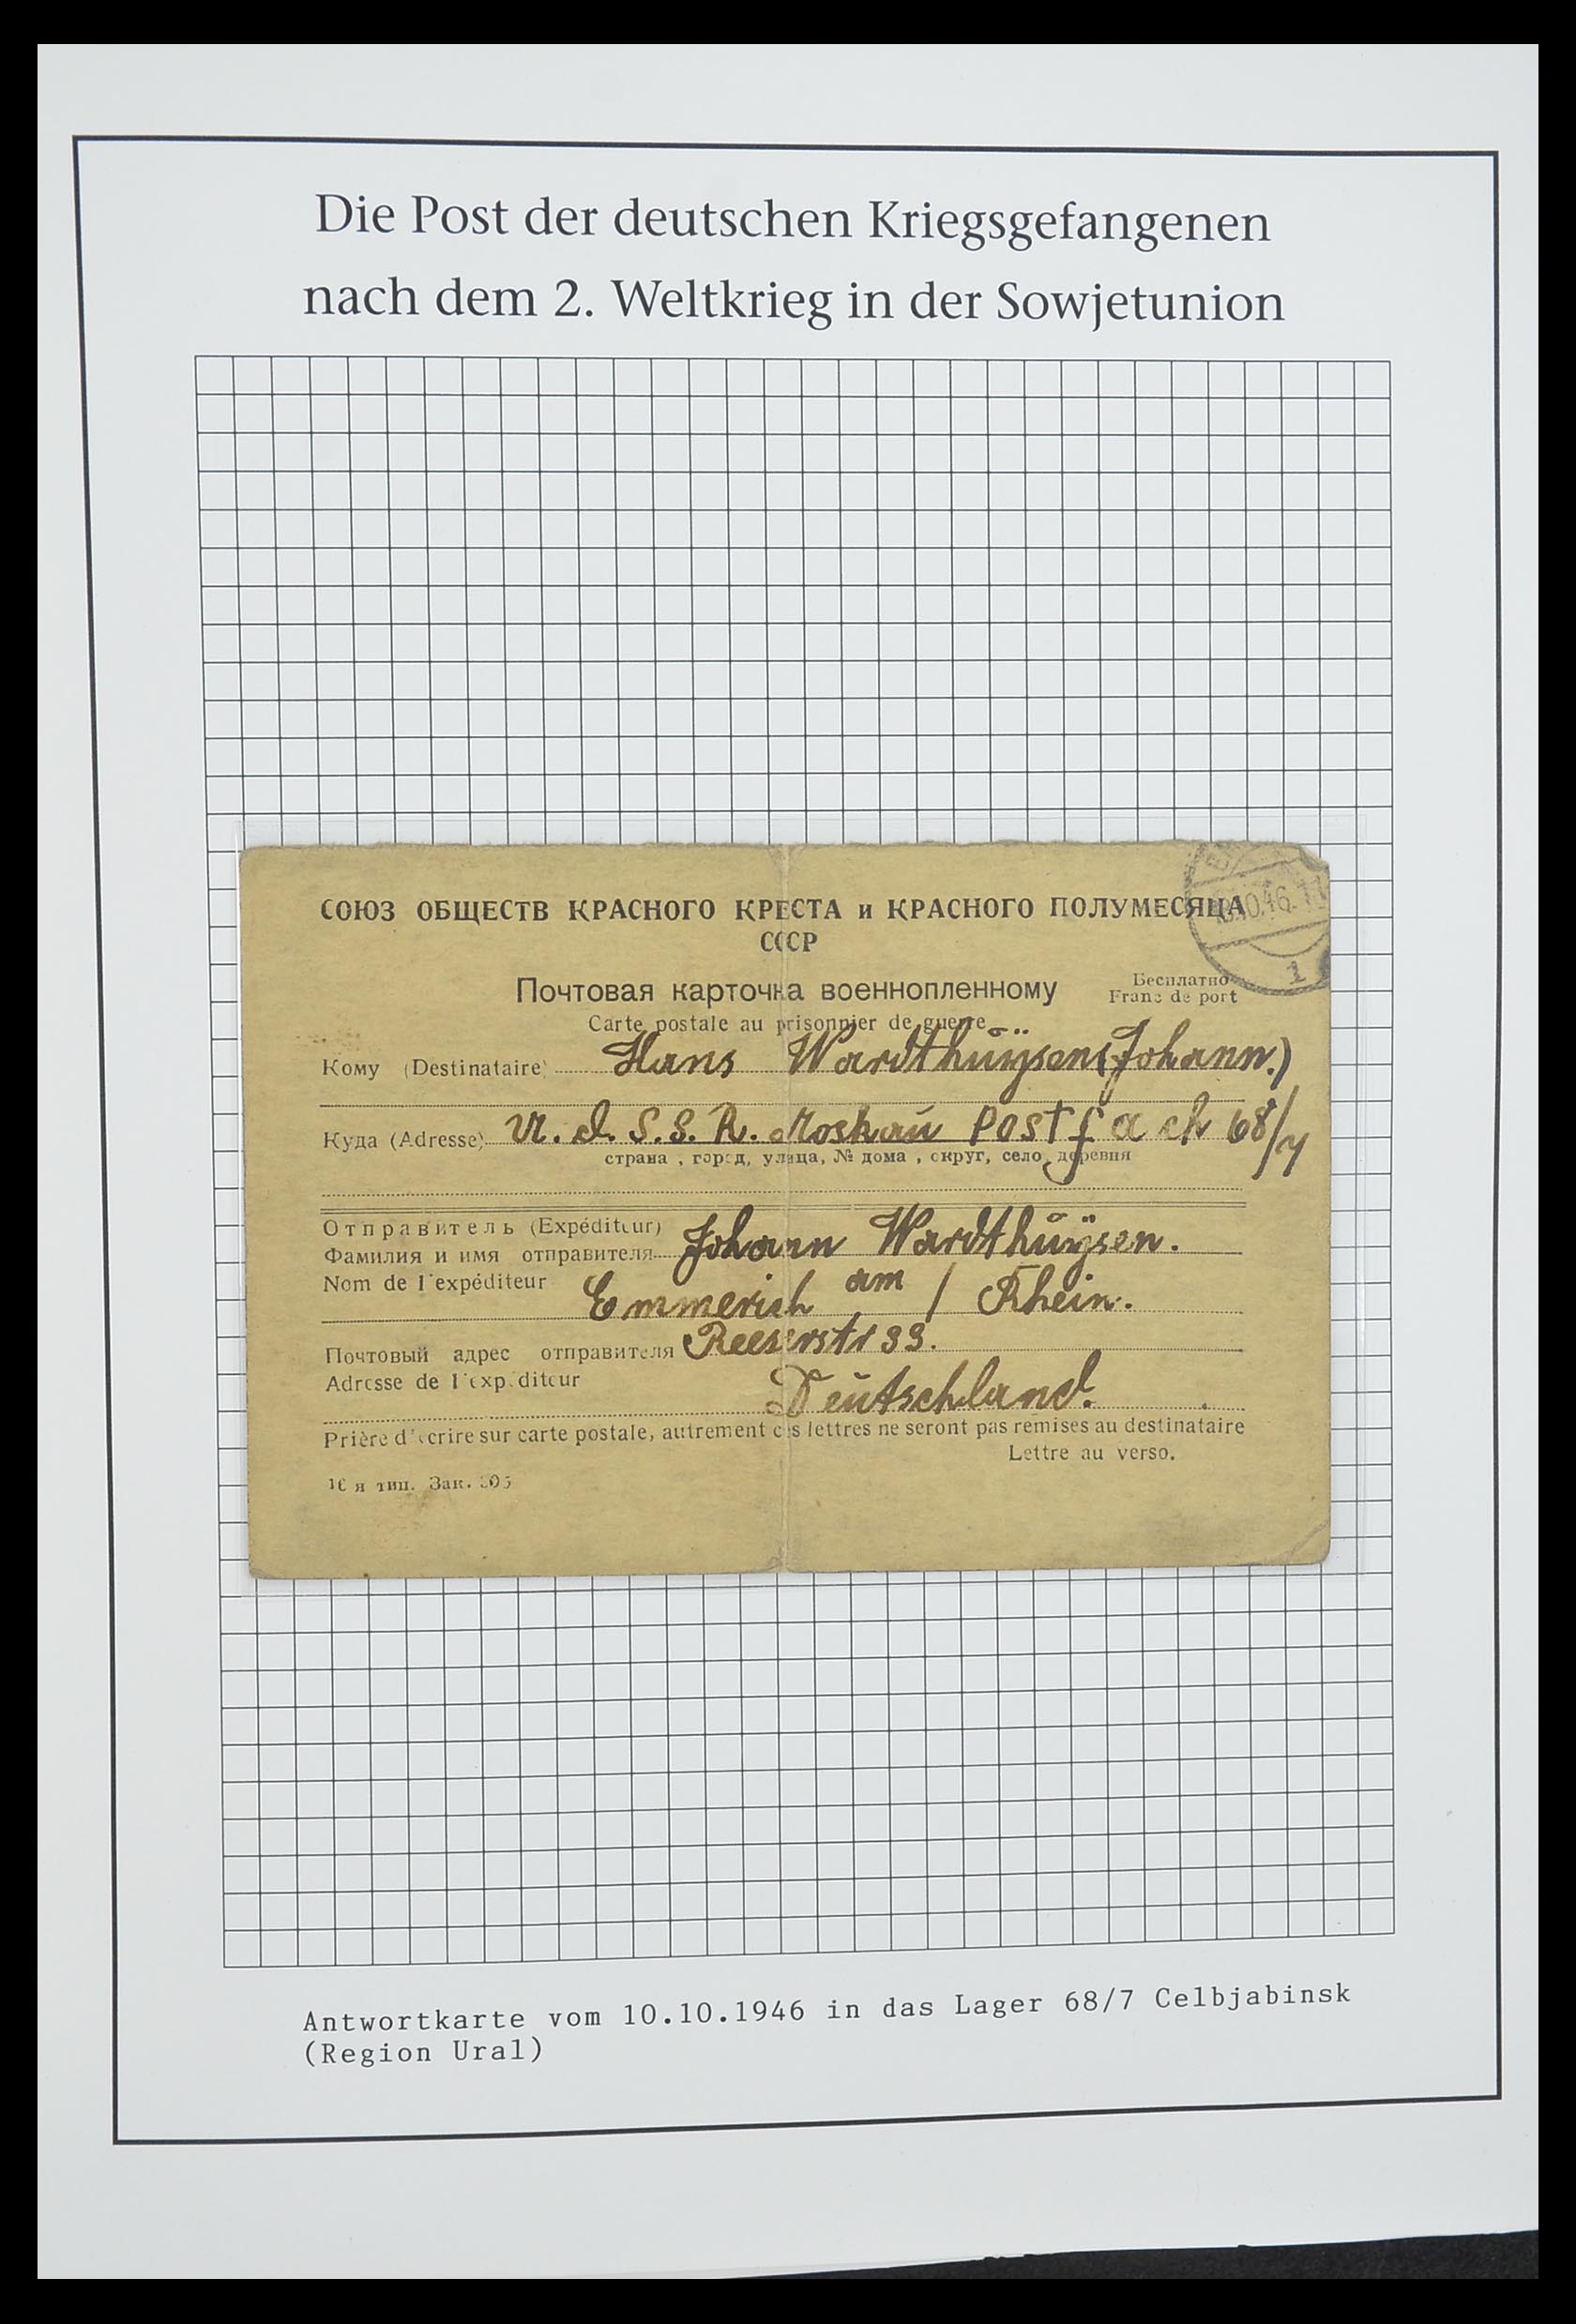 Die Post der deutschen Kriegsgefangenen
nach dem 2. Weltkrieg in der Sowjetunion
СОЮЗ ОБЩЕСТВ КРАСНОГО КРЕСТА и КРАСНОГО ПОЛУМЕСЯЦА
СССР
Почтовая карточка военнопленному
Бесплатно
Franc de port
Carte postale au prisonnier de guerre
Кому (Destinataire) Hans Wardthüÿsen (Johann.)
Куда (Adresse) U. d. S. S. R. Moskau Postfach 68/7
страна, город, улица, № дома, округ, село, деревня
Отправитель (Expéditeur)
Фамилия и имя отправителя Johann Wardthüÿsen.
Nom de l'expéditeur
Emmerich am / Rhein.
Почтовый адрес отправителя Reeserstr 33.
Adresse de l'expéditeur
Deutschland.
Prière d'écrire sur carte postale, autrement ces lettres ne seront pas remises au destinataire
Lettre au verso.
16 я тип. Зак.
Antwortkarte vom 10.10.1946 in das Lager 68/7 Celbjabinsk
(Region Ural)